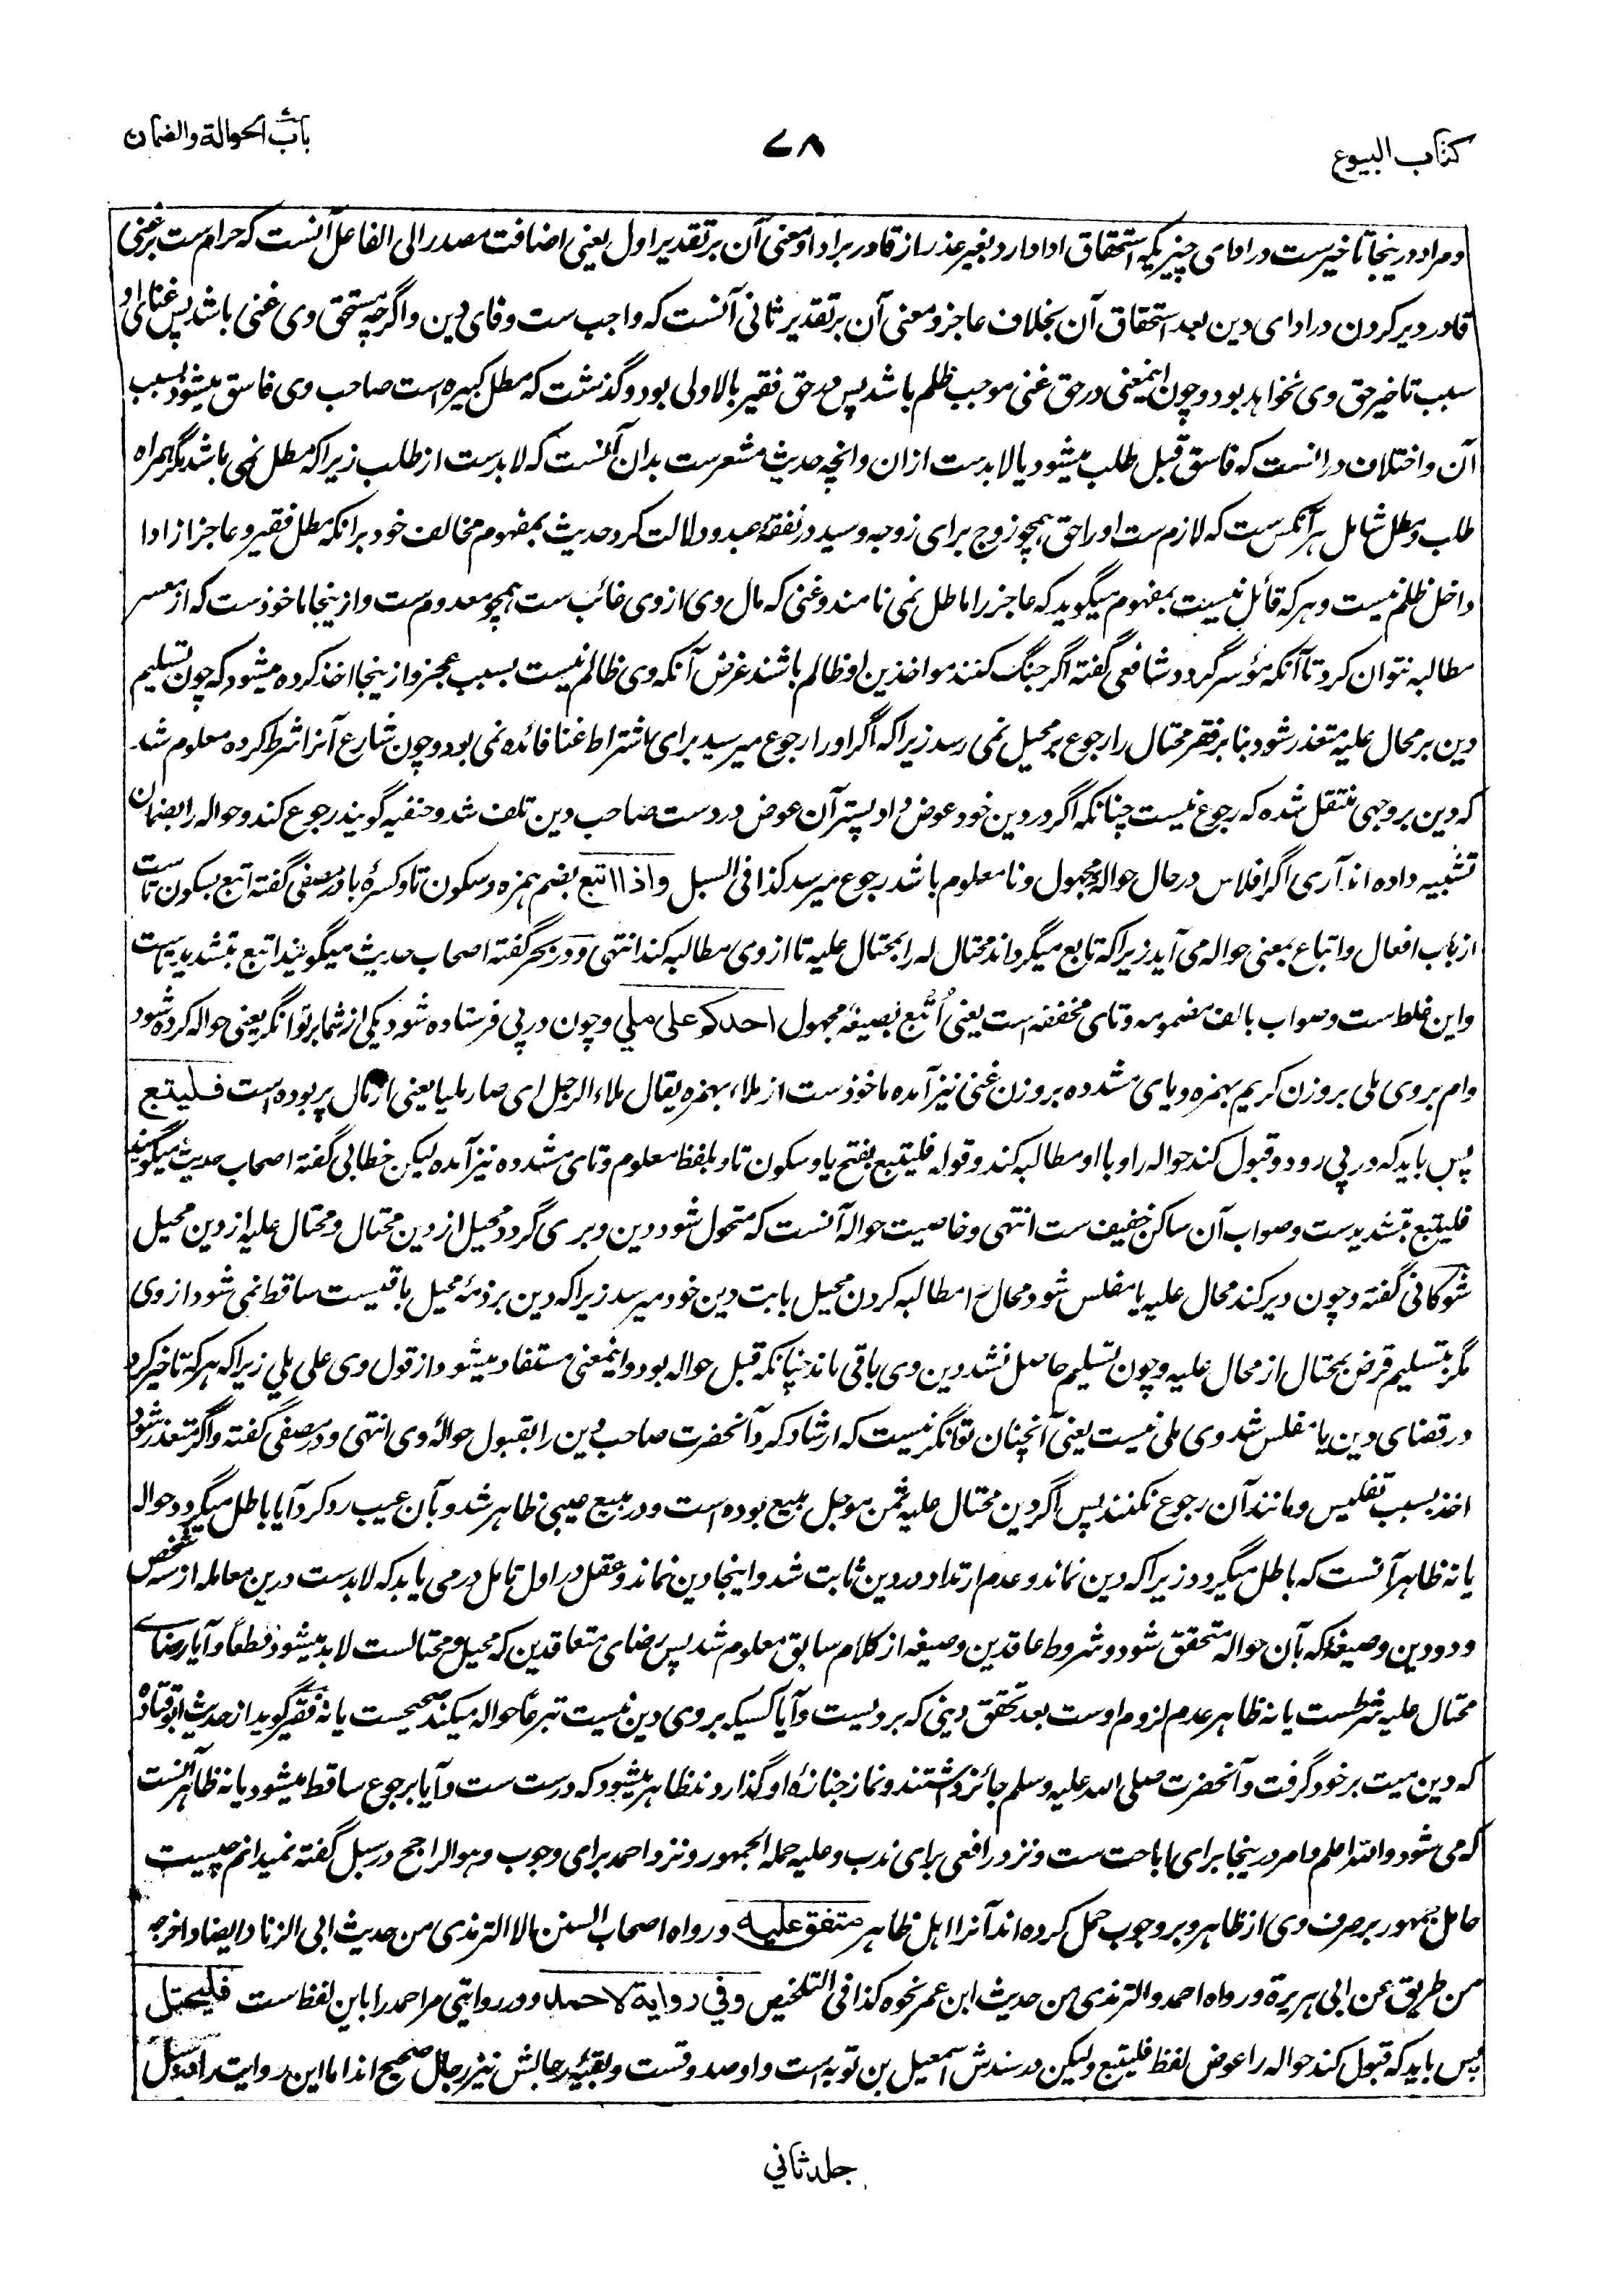 کتاب البیوع
۷۸
باب الحوالة والضمان
ومراد درینجا تاخیرست در ادای چیزیکه استحقاق ادا دارد بغیر عذر از قادر بر ادا و معنی آن بر تقدیر اول یعنی اضافت مصدر الی الفاعل آنست که حرام ست بر غنی
قادر دیر کردن در ادای دین بعد استحقاق آن بخلاف عاجز و معنی آن بر تقدیر ثانی آنست که واجب ست وفای دین و اگرچه مستحق وی غنی باشد پس غنای او
سبب تاخیر حق وی نخواهد بود و چون اینمعنی در حق غنی موجب ظلم باشد پس در حق فقیر بالاولی بود و گذشت که مطل کبیره است صاحب وی فاسق میشود بسبب
آن و اختلاف در انست که فاسق قبل طلب میشود یا لابدست ازان و انچه حدیث مشعرست بدان آنست که لابدست از طلب زیراکه مطل نمی باشد مگر همراه
طلب و مطل شامل هر آنکس ست که لازم ست او را حق همچو زوج برای زوجه و سید در نفقهٔ عبد و دلالت کرد حدیث بمفهوم مخالف خود برانکه مطل فقیر و عاجز از ادا
داخل ظلم نیست و هر که قائل نیست بمفهوم میگوید که عاجز را ماطل نمی نامند و غنی که مال وی از وی غائب ست همچو معدوم ست و ازینجا ماخوذست که از معسر
مطالبه نتوان کرد تا آنکه مؤسر گردد شافعی گفته اگر جنگ کنند مواخذین او ظالم باشند غرض آنکه وی ظالم نیست بسبب عجز و ازینجا اخذ کرده میشود که چون تسلیم
دین بر محال علیه متعذر شود بنابر فقر محتال را رجوع بر محیل نمی رسد زیراکه اگر او را رجوع میرسید برای اشتراط غنا فائده نمی بود و چون شارع آنرا شرط کرده معلوم شد
که دین بروجهی منتقل شده که رجوع نیست چنانکه اگر در دین خود عوض داد پستر آن عوض در دست صاحب دین تلف شد و حنفیه گویند رجوع کند و حواله را بضمان
تشبیه داده اند آری اگر افلاس در حال حواله مجهول و نامعلوم باشد رجوع میرسد کذا فی السبل واذا اتبع بضم همزه و سکون تا و کسرهٔ با در مصفی گفته اتبع بسکون تاست
از باب افعال و اتباع بمعنی حواله می آید زیراکه تابع میگرداند محتال له را بمحتال علیه تا از وی مطالبه کند انتهی و در بحر گفته اصحاب حدیث میگویند اتبع بتشدید تاست
و این غلط ست و صواب بالف مضمومه و تای مخففه است یعنی اُتْبع بصیغهٔ مجهول احدکم علی ملي و چون در پی فرستاده شود یکی از شما بر توانگر یعنی حواله کرده شود
وام بر وی ملی بر وزن کریم بهمزه و یای مشدده بر وزن غنی نیز آمده ماخوذست از ملاء بهمزه یقال ملاء الرجل ای صار ملیا یعنی از مال پر بوده است فلیتبع
پس باید که در پی رود و قبول کند حواله را و با او مطالبه کند و قوله فلیتبع بفتح یا و سکون تا و بلفظ معلوم و تای مشدده نیز آمده لیکن خطابی گفته اصحاب حدیث میگویند
فلیتبع بتشدیدست و صواب آن ساکن خفیف ست انتهی و خاصیت حواله آنست که متحول شود دین و بری گردد محیل از دین محتال و محتال علیه از دین محیل
شوکانی گفته و چون دیر کند محال علیه یا مفلس شود محال را مطالبه کردن محیل بابت دین خود میرسد زیراکه دین بر ذمهٔ محیل باقیست ساقط نمی شود از وی
مگر بتسلیم قرض بمحتال از محال علیه و چون تسلیم حاصل نشد دین وی باقی ماند چنانکه قبل حواله بود و اینمعنی مستفاد میشود از قول وی علی ملي زیراکه هر که تاخیر کرد
در قضای دین یا مفلس شد وی ملی نیست یعنی آنچنان توانگر نیست که ارشاد کرد آنحضرت صاحب دین را بقبول حوالهٔ وی انتهی و در مصفی گفته و اگر متعذر شود
اخذ بسبب تفلیس و مانند آن رجوع نکنند پس اگر دین محتال علیه ثمن موجل بیع بوده است و در مبیع عیبی ظاهر شد و بآن عیب رد کرد آیا باطل میگردد حواله
یا نه ظاهر آنست که باطل میگردد زیراکه دین نماند و عدم ارتداد در دین ثابت شد و اینجا دین نماند و عقل در اول تامل درمی یابد که لابدست درین معامله از سه شخص
و دو دین و صیغهٔ که بآن حواله متحقق شود و شروط عاقدین و صیغه از کلام سابق معلوم شد پس رضای متعاقدین که محیل و محتالست لابد میشود قطعاً و آیا رضای
محتال علیه شرطست یا نه ظاهر عدم لزوم اوست بعد تحقق دینی که بر دیست و آیا کسیکه بر وی دین نیست تبرعاً حواله میکند صحیحست یا نه فقیر گوید از حدیث ابوقتاده
که دین میت بر خود گرفت و آنحضرت صلی الله علیه وسلم جائز داشتند و نماز جنازهٔ او گذاردند ظاهر میشود که درست ست و آیا برجوع ساقط میشود یا نه ظاهر آنست
که می شود والله اعلم و امر درینجا برای اباحت ست و نزد رافعی برای ندب و علیه حمله الجمهور و نزد احمد برای وجوب و هو الراجح در سبل گفته نمیدانم چیست
حامل جمهور بر صرف وی از ظاهر و بر وجوب حمل کرده اند آنرا اهل ظاهر متفق علیه و رواه اصحاب السنن الا الترمذی من حدیث ابی الزناد ایضا و اخرجه
من طریق عن ابی هریرة و رواه احمد والترمذی من حدیث ابن عمر نحوه کذا فی التلخیص وفي رواية لاحمد و در روایتی مر احمد را باین لفظ ست فلیحتل
پس باید که قبول کند حواله را عوض لفظ فلیتبع ولیکن در سندش اسمعیل بن توبه است و او صدوقست و بقیه رجالش نیز رجال صحیح اند اما این روایت را در سبل
جلد ثانی